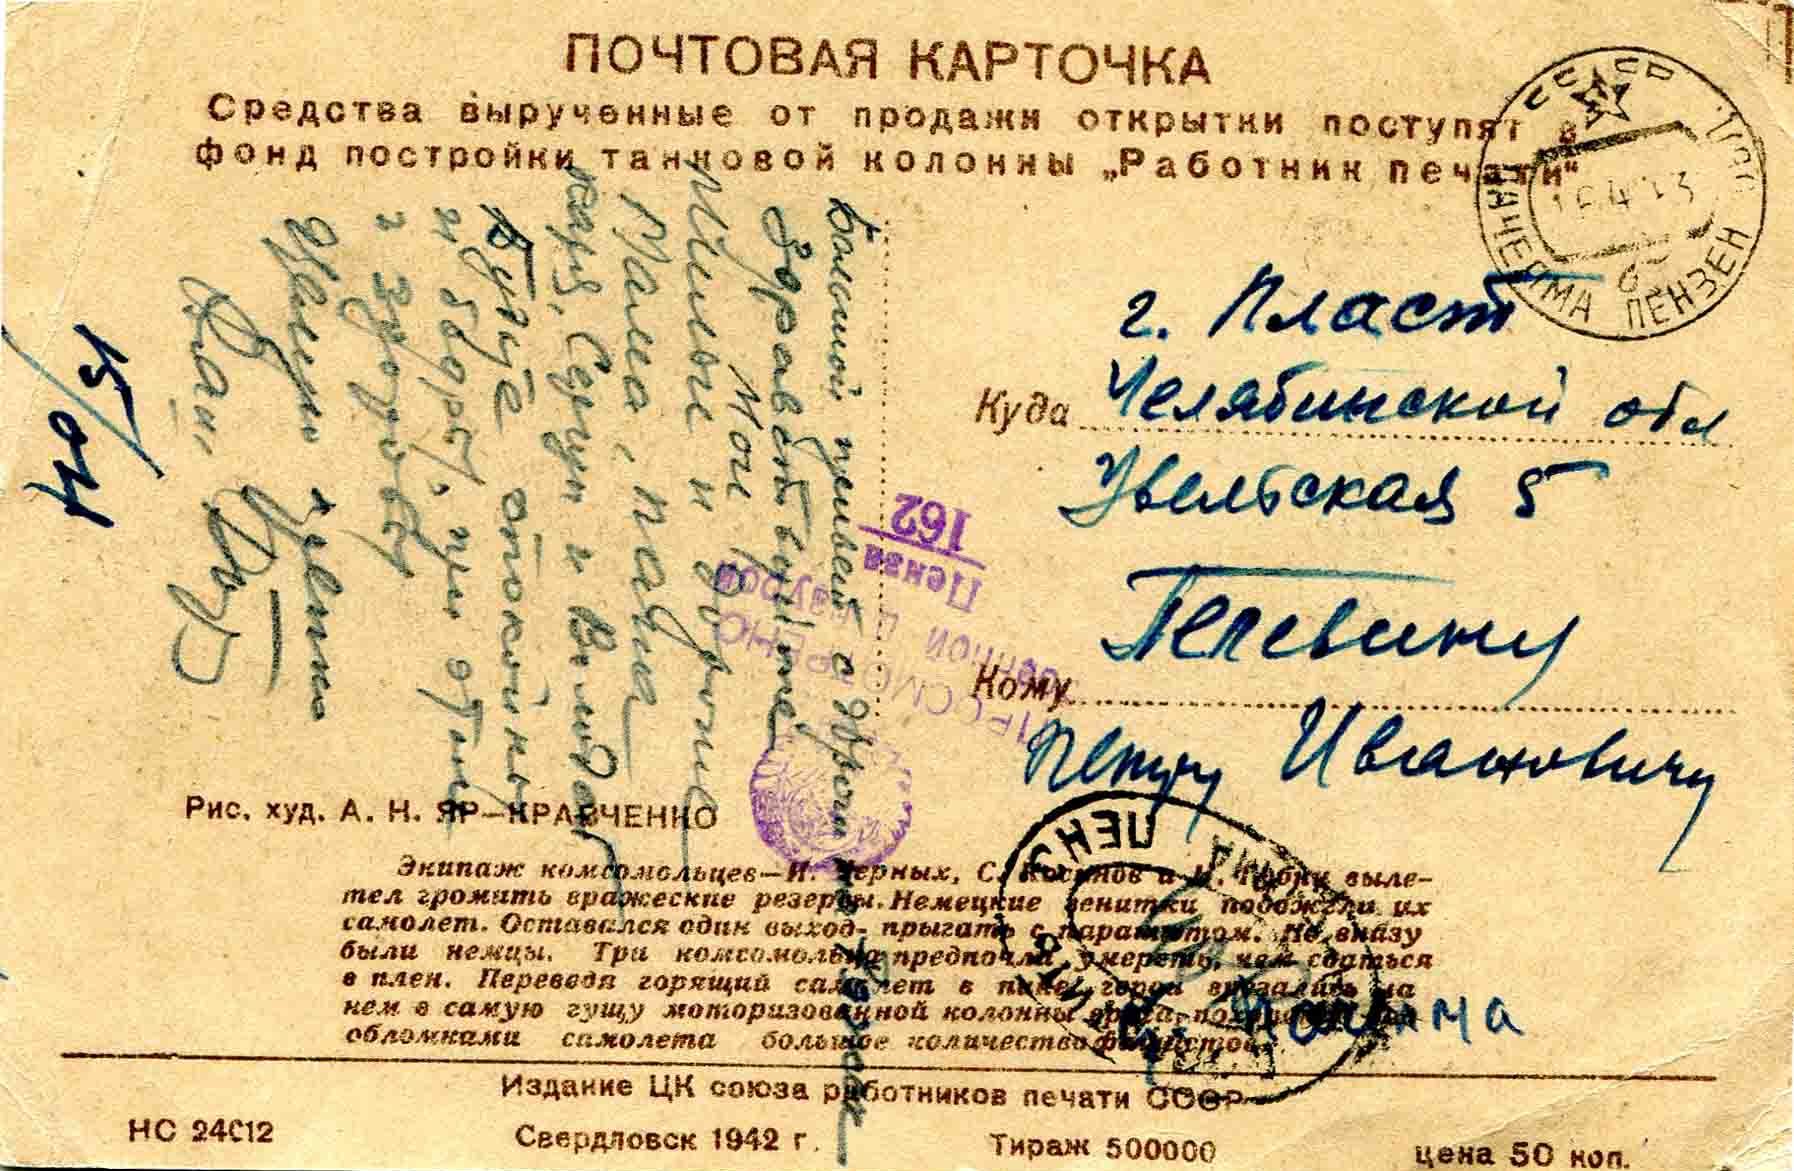 ПОЧТОВАЯ КАРТОЧКА
Средства вырученные от продажи открытки поступят в
фонд постройки танковой колонны „Работник печати“
СССР
ПАЧЕЛМА ПЕНЗЕН
Большой привет с дороги
Здравствуйте
Мои
Милые и родные
Мама, папа
Сергун и
Будьте спокойны
и бодры, при этом
и здоровы
Целую крепко
Ваш
15/04
г. Пласт
Куда Челябинской обл
Увельская 5
Кому
Петру Ивановичу
ПРОСМОТРЕНО
Военной Цензурой
Пенза
162
Рис. худ. А. Н. ЯР–КРАВЧЕНКО
Экипаж комсомольцев—И. Черных, С. Косинов и Н. Губин выле–
тел громить вражеские резервы. Немецкие зенитки подожгли их
самолет. Оставался один выход- прыгать с парашютом. Но внизу
были немцы. Три комсомольца предпочли умереть, чем сдаться
в плен. Переведя горящий самолет в пике, герои врезались на
нем в самую гущу моторизованной колонны врага, похоронив под
обломками самолета большое количество фашистов.
Пачелма
Издание ЦК союза работников печати СССР
НС 24012
Свердловск 1942 г.
Тираж 500000
цена 50 коп.